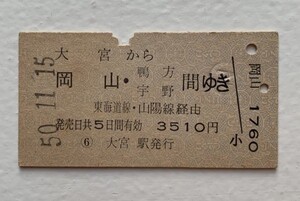 大宮から
岡山・鴨方
宇野間ゆき
東海道線・山陽線経由
発売日共5日間有効 3510円
⑥ 大宮駅発行
50.11.15
岡山
小
1760